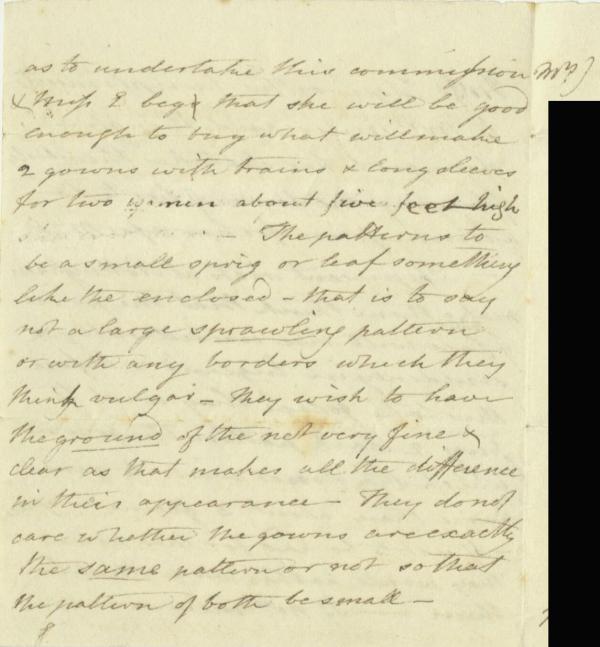 as to undertake this commission Mrs)
& Miss E beg that she will be good
enough to buy what will make
2 gowns with trains & long sleeves
for two women about five feet high
– The patterns to
be a small sprig or leaf something
like the enclosed – that is to say
not a large sprawling pattern
or with any borders which they
think vulgar – They wish to have
the ground of the net very fine &
clear as that makes all the difference
in their appearance – They do not
care whether the gowns are exactly
the same pattern or not so that
the pattern of both be small –